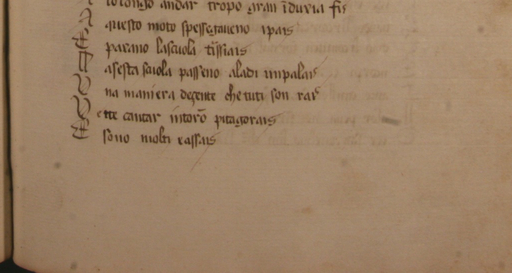 lo longo andar tropo gran iduxia fis
questo moto spessegaueno ipais
E parano lascuola tissiais
A asesta scuola passeno aladi impalais
V na maniera decente che tuti son rais
V ette cantar intorō pitagorais
E sono molti cassais